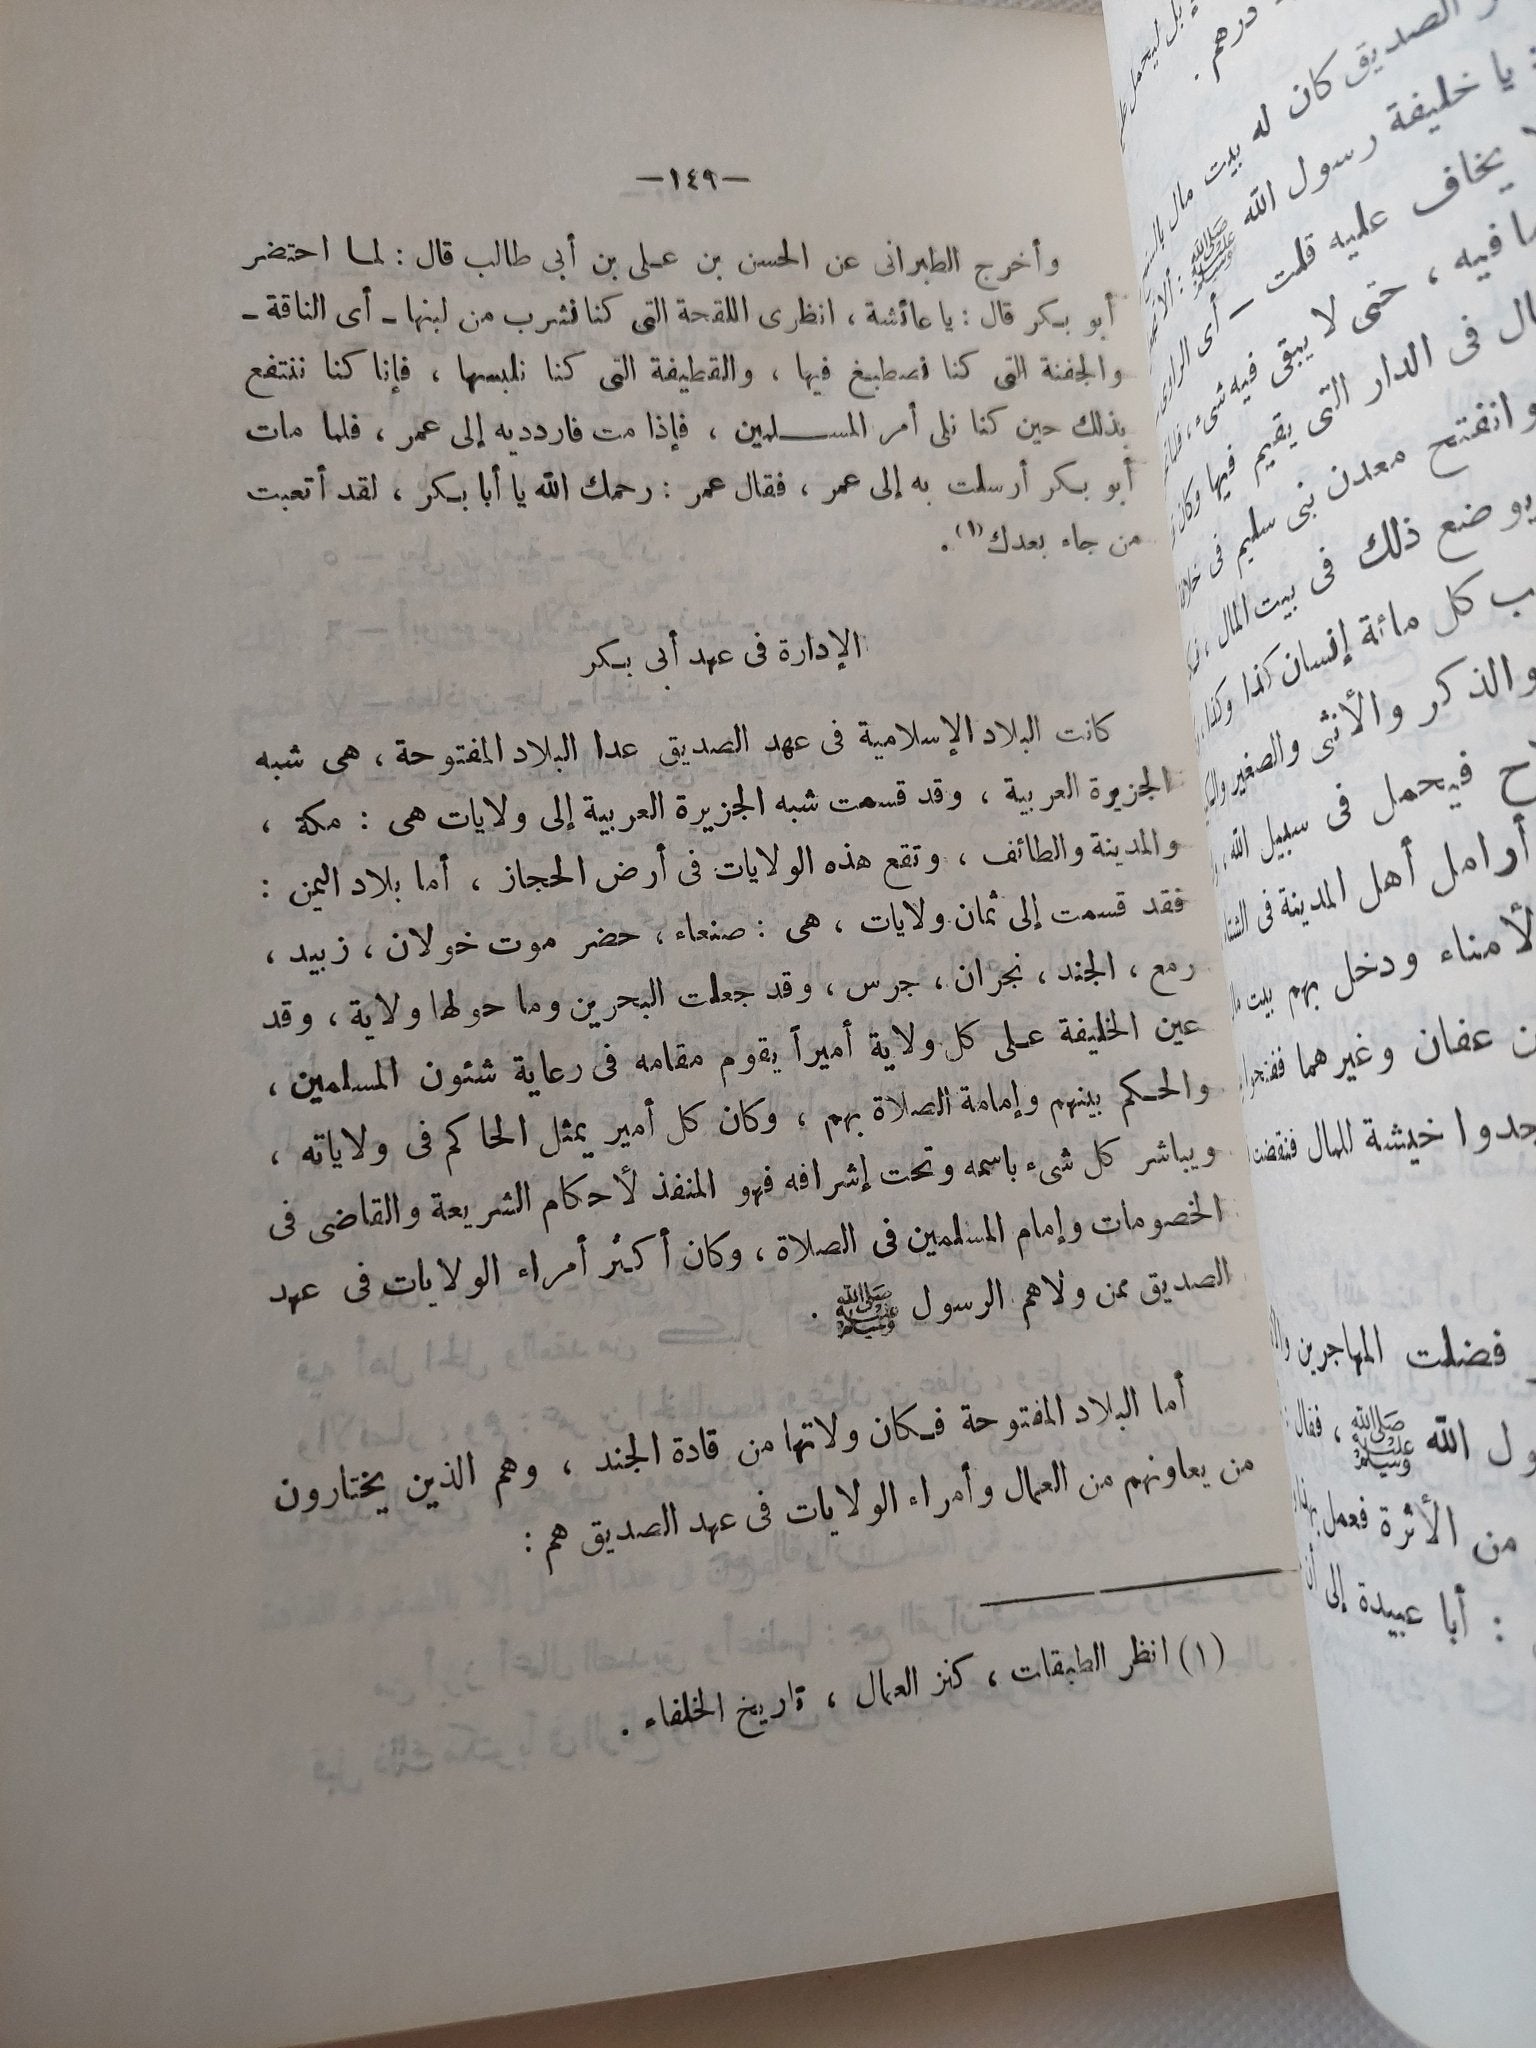 —١٤٩—
وأخرج الطبرانى عن الحسن بن عـلى بن أبى طالب قال : لمـا احتضر
أبو بـكر قال : يا عائشة ، انظرى اللقحة التى كنا نشرب من لبنها ـ أى الناقة ـ
والجفنة التى كنا نصطبغ فيها ، والقطيفة التى كنا نلبسها ، فإنا كنا ننتفع
بذلك حين كنا نلى أمر المســـلمين ، فإذا مت فارددیه إلى عمر ، فلما مات
أبو بـكر أرسلت به إلى عمر ، فقال عمر : رحمك الله يا أبا بـكر ، لقد أتعبت
من جاء بعدك (١) .
الإدارة فى عهد أبى بـكر
كانت البلاد الإسلامية فى عهد الصديق عدا البلاد المفتوحة ، هى شبه
الجزيرة العربية ، وقد قسمت شبه الجزيرة العربية إلى ولايات هى : مكة ،
والمدينة والطائف ، وتقع هذه الولايات فى أرض الحجاز ، أما بلاد اليمن :
فقد قسمت إلى ثمان ولايات ، هى : صنعاء ، حضر موت خولان ، زبيد ،
رمع ، الجند ، نجران ، جرس ، وقد جعلت البحرين وما حولها ولاية ، وقد
عين الخليفة عـلى كل ولاية أميراً يقوم مقامه فى رعاية شئون المسلمين ،
والحـكم بينهم وإمامة الصلاة بهم ، وكان كل أمير يمثل الحاكم فى ولاياته ،
ويباشر كل شىء باسمه وتحت إشرافه فهو المنفذ لأحكام الشريعة والقاضى فى
الخصومات وإمام المسلمين فى الصلاة ، وكان أكثر أمراء الولايات فى عهد
الصديق ممن ولاهم الرسول ﷺ .
أما البلاد المفتوحة فـكان ولاتها من قادة الجند ، وهم الذين يختارون
من يعاونهم من العمال وأمراء الولايات فى عهد الصديق هم :
(١) انظر الطبقات ، كنز العمال ، تاريخ الخلفاء .
درهم .
الصديق كان له بيت مال
يا خليفة رسول الله ﷺ : ألا
يخاف عليه قلت ـ أى الراوى
فيه ، حتى لا يبقى فيه شىء ،
فى الدار التى يقيم فيها وكان
وانفتح معدن بنى سليم فى
يوضع ذلك فى بيت المال ،
كل مائة إنسان كذا وكذا
والذكر والأنثى والصغير
فيحمل فى سبيل الله ،
أرامل أهل المدينة فى
ودخل بهم بيت
عفان وغيرهما ففتحوا
خيشة للمال فنفضت
فضلت المهاجرين
الله ﷺ ، فقال
من الأثرة فعمل
: أبا عبيدة إلى أن